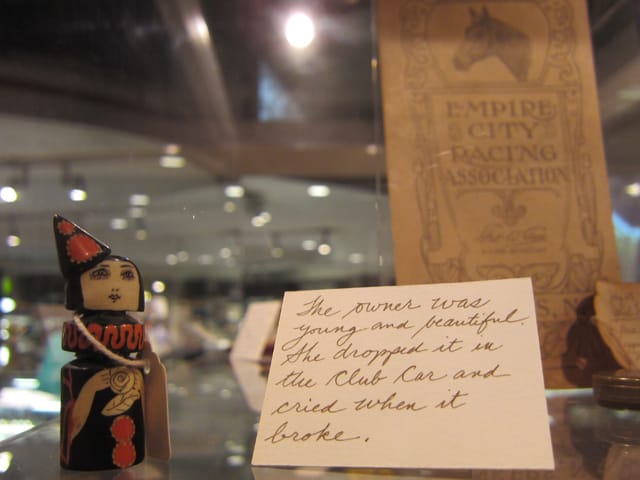 EMPIRE
CITY
RACING
ASSOCIATION
The owner was
young and beautiful.
She dropped it in
the Club Car and
cried when it
broke.